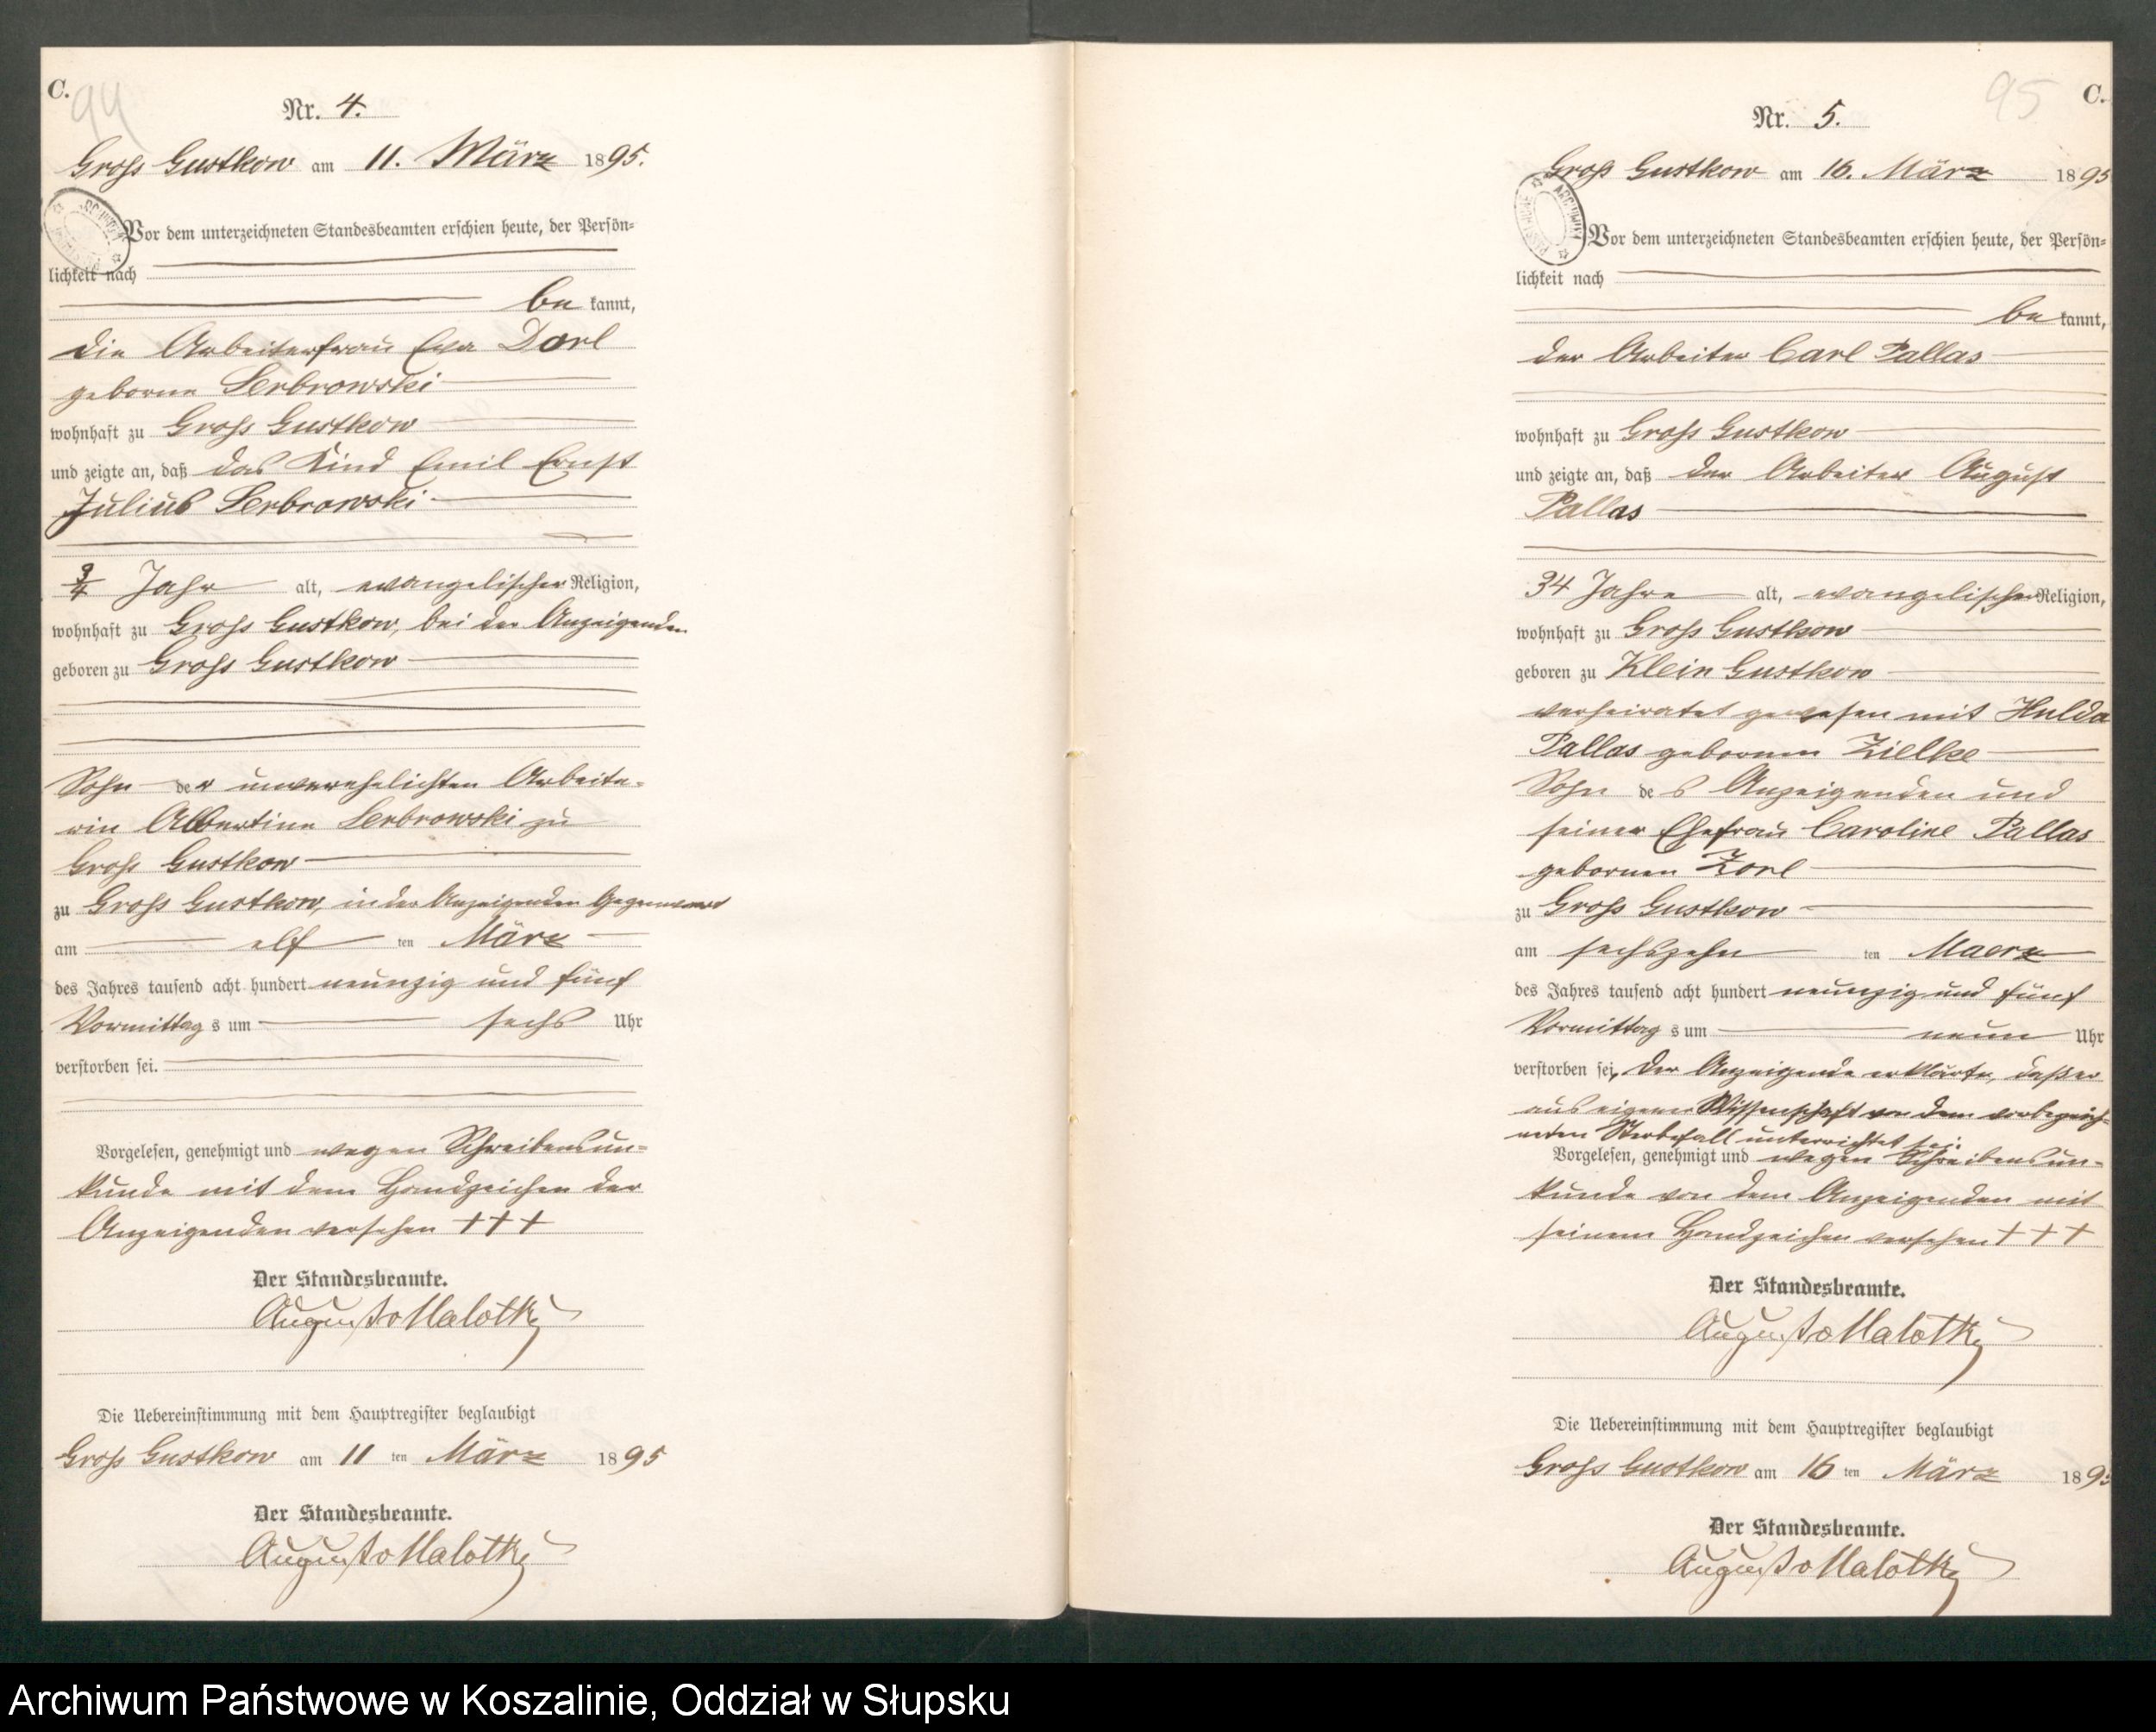 C.
94
Nr. 4.
Gross Gustkow am 11. März 1895.
Vor dem unterzeichneten Standesbeamten erschien heute, der Persön-
lichkeit nach
be kannt,
die Arbeiterfrau Eva Dorl
geborne Serbrowski
wohnhaft zu Gross Gustkow
und zeigte an, daß das Kind Emil Ernst
Julius Serbrowski
3/4 Jahr alt, evangelischer Religion,
wohnhaft zu Gross Gustkow, bei der Anzeigenden
geboren zu Gross Gustkow
Sohn der unverehelichten Arbeite-
rin Albertine Serbrowski zu
Gross Gustkow
zu Gross Gustkow, in der Anzeigenden Gegenwart
am elf ten März
des Jahres tausend acht hundert neunzig und fünf
Vormittag s um sechs Uhr
verstorben sei.
Vorgelesen, genehmigt und wegen Schreibensun-
kunde mit dem Handzeichen der
Anzeigenden versehen +++
Der Standesbeamte.
August Malotky
Die Uebereinstimmung mit dem Hauptregister beglaubigt
Gross Gustkow am 11 ten März 1895
Der Standesbeamte.
August Malotky
95
C.
Nr. 5.
Gross Gustkow am 16. März 1895
Vor dem unterzeichneten Standesbeamten erschien heute, der Persön-
lichkeit nach
be kannt,
der Arbeiter Carl Pallas
wohnhaft zu Gross Gustkow
und zeigte an, daß der Arbeiter August
Pallas
34 Jahre alt, evangelischer Religion,
wohnhaft zu Gross Gustkow
geboren zu Klein Gustkow
verheiratet gewesen mit Hulda
Pallas gebornen Zielke
Sohn des Anzeigenden und
seiner Ehefrau Caroline Pallas
gebornen Zorl
zu Gross Gustkow
am sechszehn ten Maerz
des Jahres tausend acht hundert neunzig und fünf
Vormittag s um neun Uhr
verstorben sei, der Anzeigende erklärte, daß er
aus eigener Wissenschaft von dem vorbezeich-
neten Sterbefall unterrichtet sei.
Vorgelesen, genehmigt und wegen Schreibensun-
kunde von dem Anzeigenden mit
seinem Handzeichen versehen +++
Der Standesbeamte.
August Malotky
Die Uebereinstimmung mit dem Hauptregister beglaubigt
Gross Gustkow am 16 ten März 1895
Der Standesbeamte.
August Malotky
Archiwum Państwowe w Koszalinie, Oddział w Słupsku